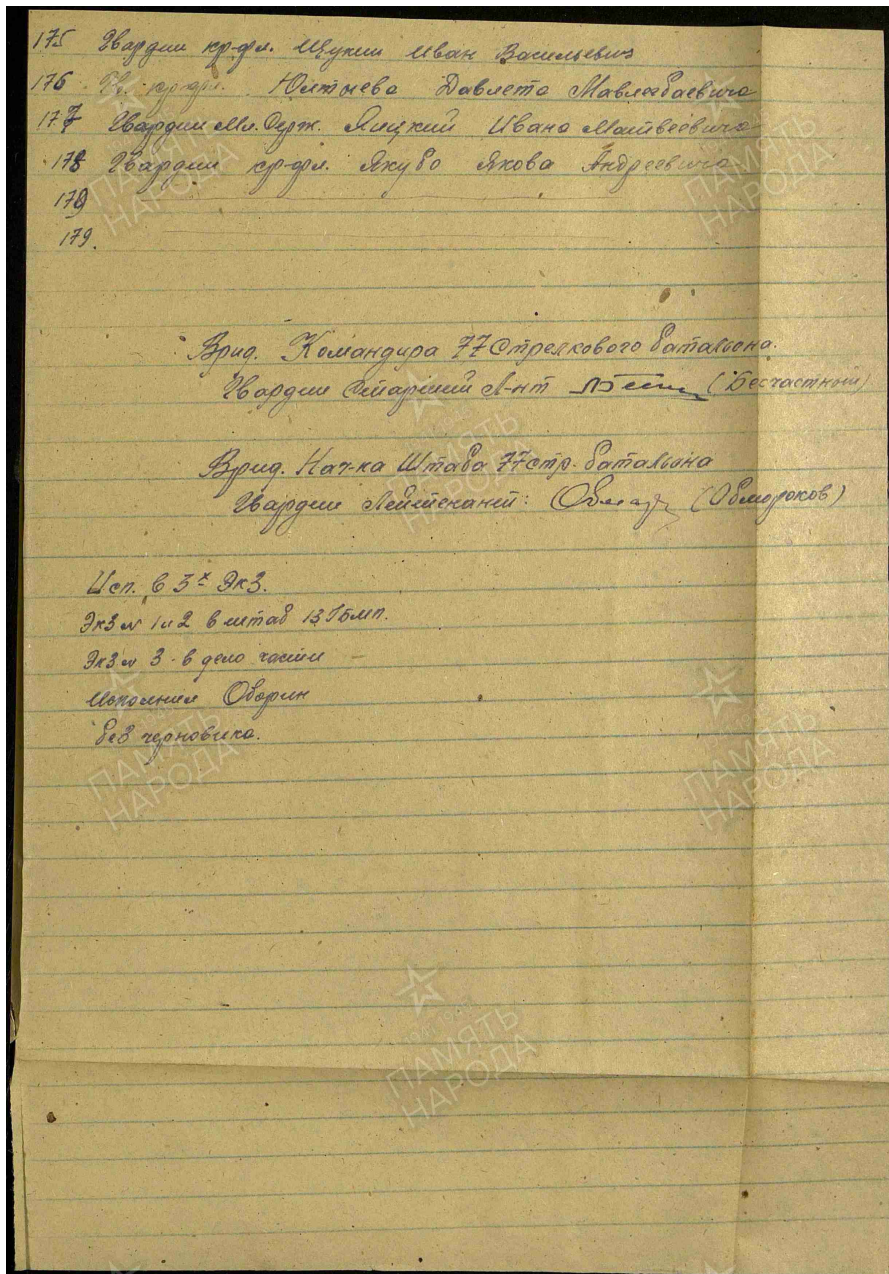 175 Гвардии кр-фл. Щукин Иван Васильевич
176 Гв. кр-фл. Юлтыева Давлета Мавлетбаевича
177 Гвардии Мл. Серж. Яицкий Ивана Матвеевича
178 Гвардии кр-фл. Якубо Якова Андреевича
179
179.
Врид. Командира 77 Стрелкового батальона.
Гвардии Старший Л-нт (Бесчастный)
Врид. Нач-ка Штаба 77 стр. батальона
Гвардии Лейтенант: (Обмороков)
Исп. в 3х Экз.
Экз № 1 и 2 в штаб 13 ГБМП.
Экз № 3 - в дело части
Исполнил Оборин
без черновика.
ПАМЯТЬ
НАРОДА